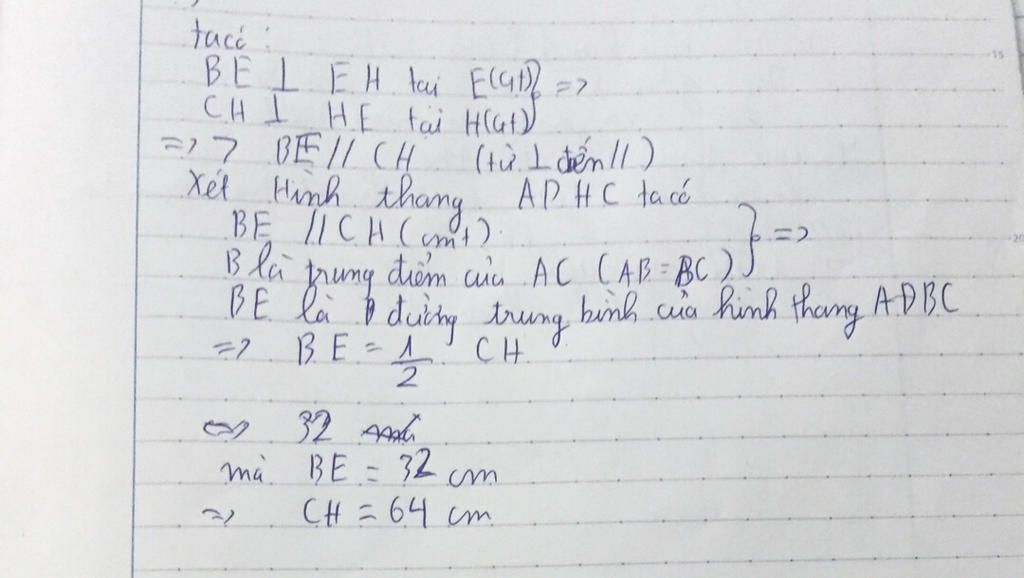 ta có :
BE ⊥ EH tại E(Gt) } =>
CH ⊥ HE tại H(Gt)
=> BE // CH (từ ⊥ đến //)
Xét Hình thang ADHC ta có
BE // CH (cmt) } =>
B là trung điểm của AC (AB = BC)
BE là đường trung bình của hình thang ADBC
=> BE = 1/2 CH
<=> 32
mà BE = 32 cm
=> CH = 64 cm
15
20